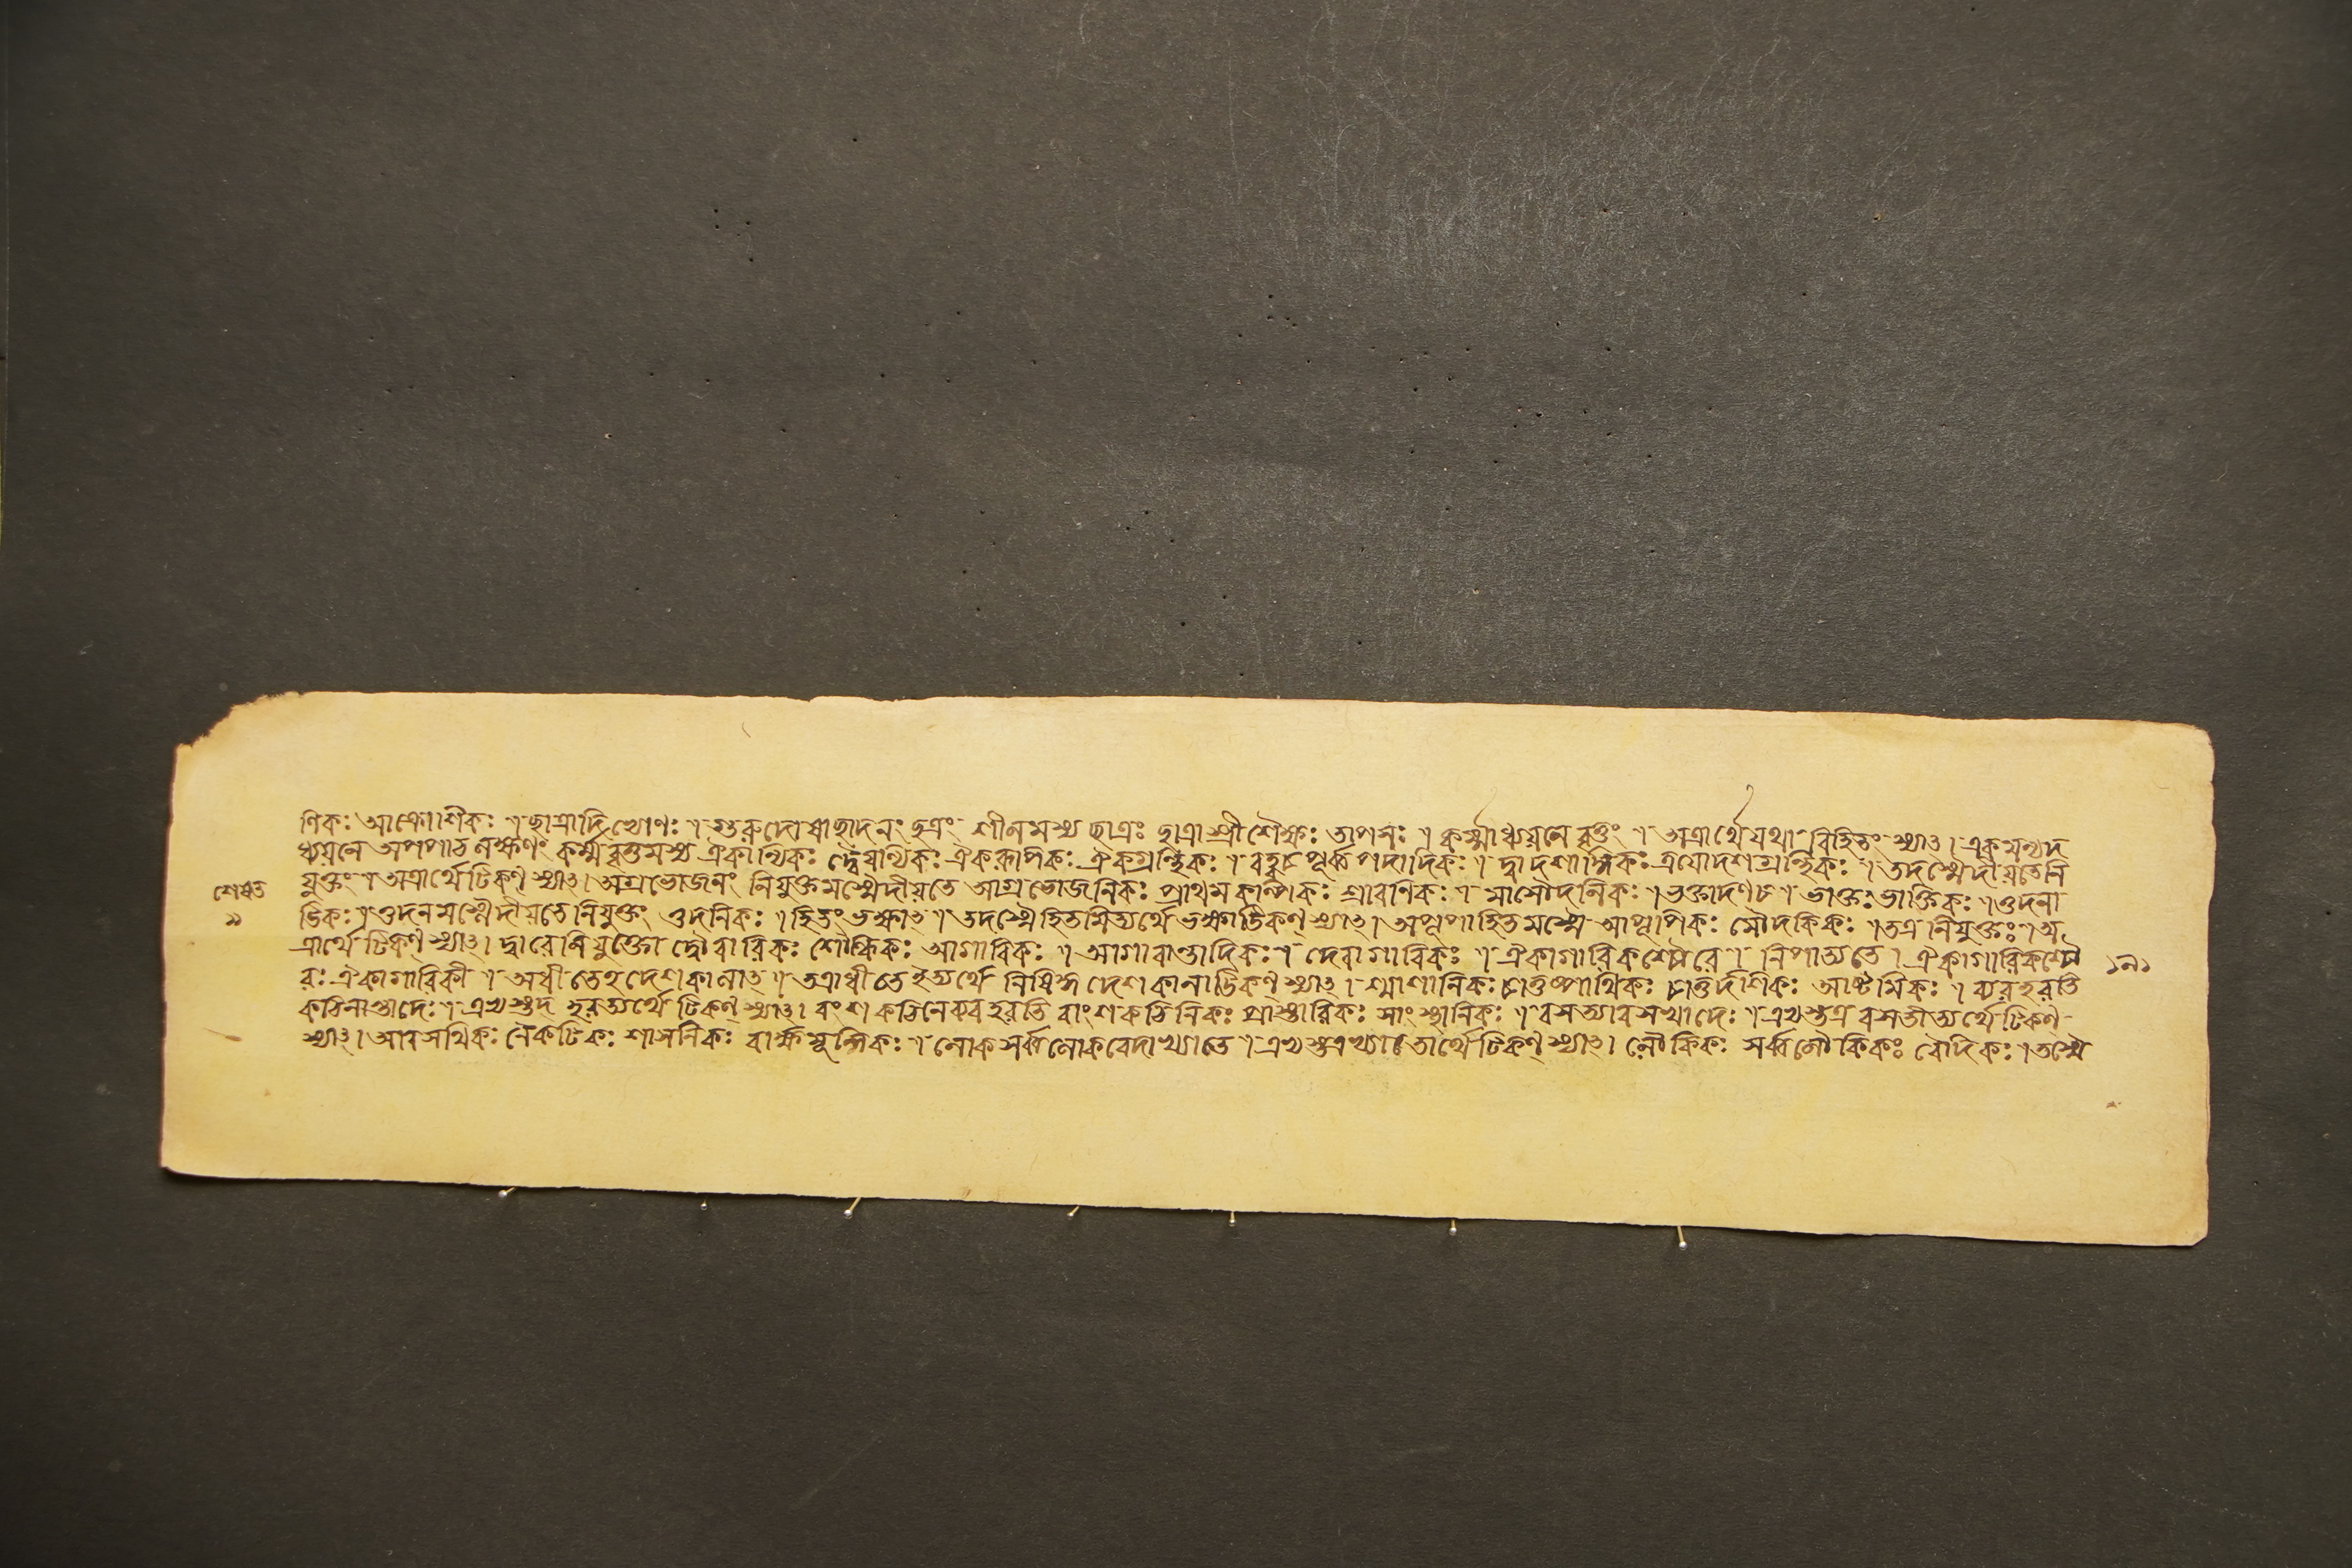 ণিকঃ আক্রোশিকঃ ৷ ছাত্রাদিত্থোণঃ ৷ গুরুদোষাছাদনং ছত্রং শীলমস্য ছাত্রঃ ছাত্রাস্ত্রী শৈক্ষঃ তাপসঃ ৷ কর্ম্মাধ্যয়নে বৃত্তং ৷ অত্রার্থে যথা বিহিতং স্যাৎ। একমন্যদ
ধ্যয়নে অপপাঠলক্ষণং কর্ম্ম বৃত্তমস্য ঐকান্যিকঃ দ্বৈয়ন্যিকঃ ঐকরূপিকঃ ঐকগ্রন্থিকঃ ৷ বহ্বচ্পূর্ব্বপদাদিকঃ ৷ দ্বাদশান্যিকঃ ত্রয়োদশগ্রন্থিকঃ ৷ তদস্মৈদীয়তেনি
যুক্তং ৷ অত্রার্থে টিকণ্ স্যাৎ। অগ্রভোজনং নিযুক্তমস্মৈদীয়তে আগ্রভোজনিকঃ প্রাথমকল্পিকঃ শ্রাবণিকঃ ৷ মাংসৌদনিকঃ ৷ ভক্তাদণচ ৷ ভাক্তঃ ভাক্তিকঃ ৷ ওদনা
ট্টিকঃ ৷ ওদনমস্মৈদীয়তেনিযুক্তং ওদনিকঃ ৷ হিতংভক্ষাৎ ৷ তদস্মৈহিতমিত্যর্থে ভক্ষাট্টিকণ্ স্যাৎ। অপূপাহিতমস্মৈ আপূপিকঃ মৌদকিকঃ ৷ তত্র নিযুক্তঃ ৷ অ
ত্রার্থে টিকণ্ স্যাৎ। দ্বারেনিযুক্তো দৌবারিকঃ শৌল্কিকঃ আগারিকঃ ৷ আগারান্তাদিকঃ ৷ দেবাগারিকঃ ৷ ঐকাগারিকশ্চৌরে ৷ নিপাত্যতে। ঐকাগারিকশ্চৌ
রঃ ঐকাগারিকী ৷ অধীতেহদেশকালাৎ ৷ তত্রাধীতে ইত্যর্থে নিষিদ্ধদেশকালাট্টিকণ্ স্যাৎ। শ্মাশানিকঃ চাতুষ্পথিকঃ চাতুর্দশিকঃ আষ্টমিকঃ ৷ ব্যবহরতি
কঠিনান্তাদেঃ ৷ এভ্যস্তদ্ব্যবহরত্যর্থে টিকণ্ স্যাৎ। বংশকঠিনেব্যবহরতি বাংশকঠিনিকঃ প্রাস্তারিকঃ সাংস্থানিকঃ ৷ বসত্যাবসথাদেঃ ৷ এভ্যস্তত্র বসতীত্যর্থে টিকণ্
স্যাৎ। আবসথিকঃ নৈকটিকঃ শ্মাশানিকঃ বার্ক্ষমূলিকঃ ৷ লোকসর্ব্বলোকবেদাৎখ্যাতে ৷ এভ্যস্তত্রখ্যাতার্থে টিকণ্ স্যাৎ। লৌকিকঃ সর্ব্বলৌকিকঃ বৈদিকঃ ৷ তস্মৈ
শেষত
৯
১৯১